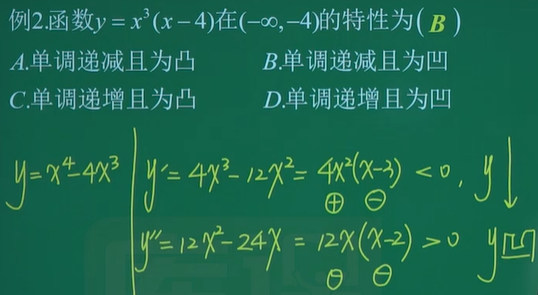 例2.函数y = x³(x − 4)在(−∞,−4)的特性为( B )
A.单调递减且为凸 B.单调递减且为凹
C.单调递增且为凸 D.单调递增且为凹
y=x⁴-4x³ y′= 4x³-12x²= 4x²(x-3) <0, y↓
⊕ ⊖
y″=12x²-24x = 12x(x-2) >0 y凹
⊖ ⊖